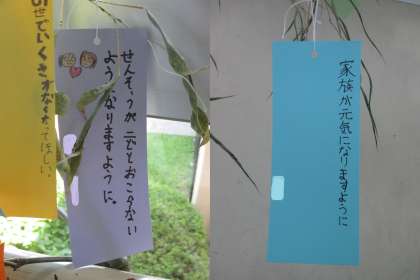 世でいくさがなくなってほしい。
せんそうが二どとおこらない
ようになりますように。
家族が元気になりますように